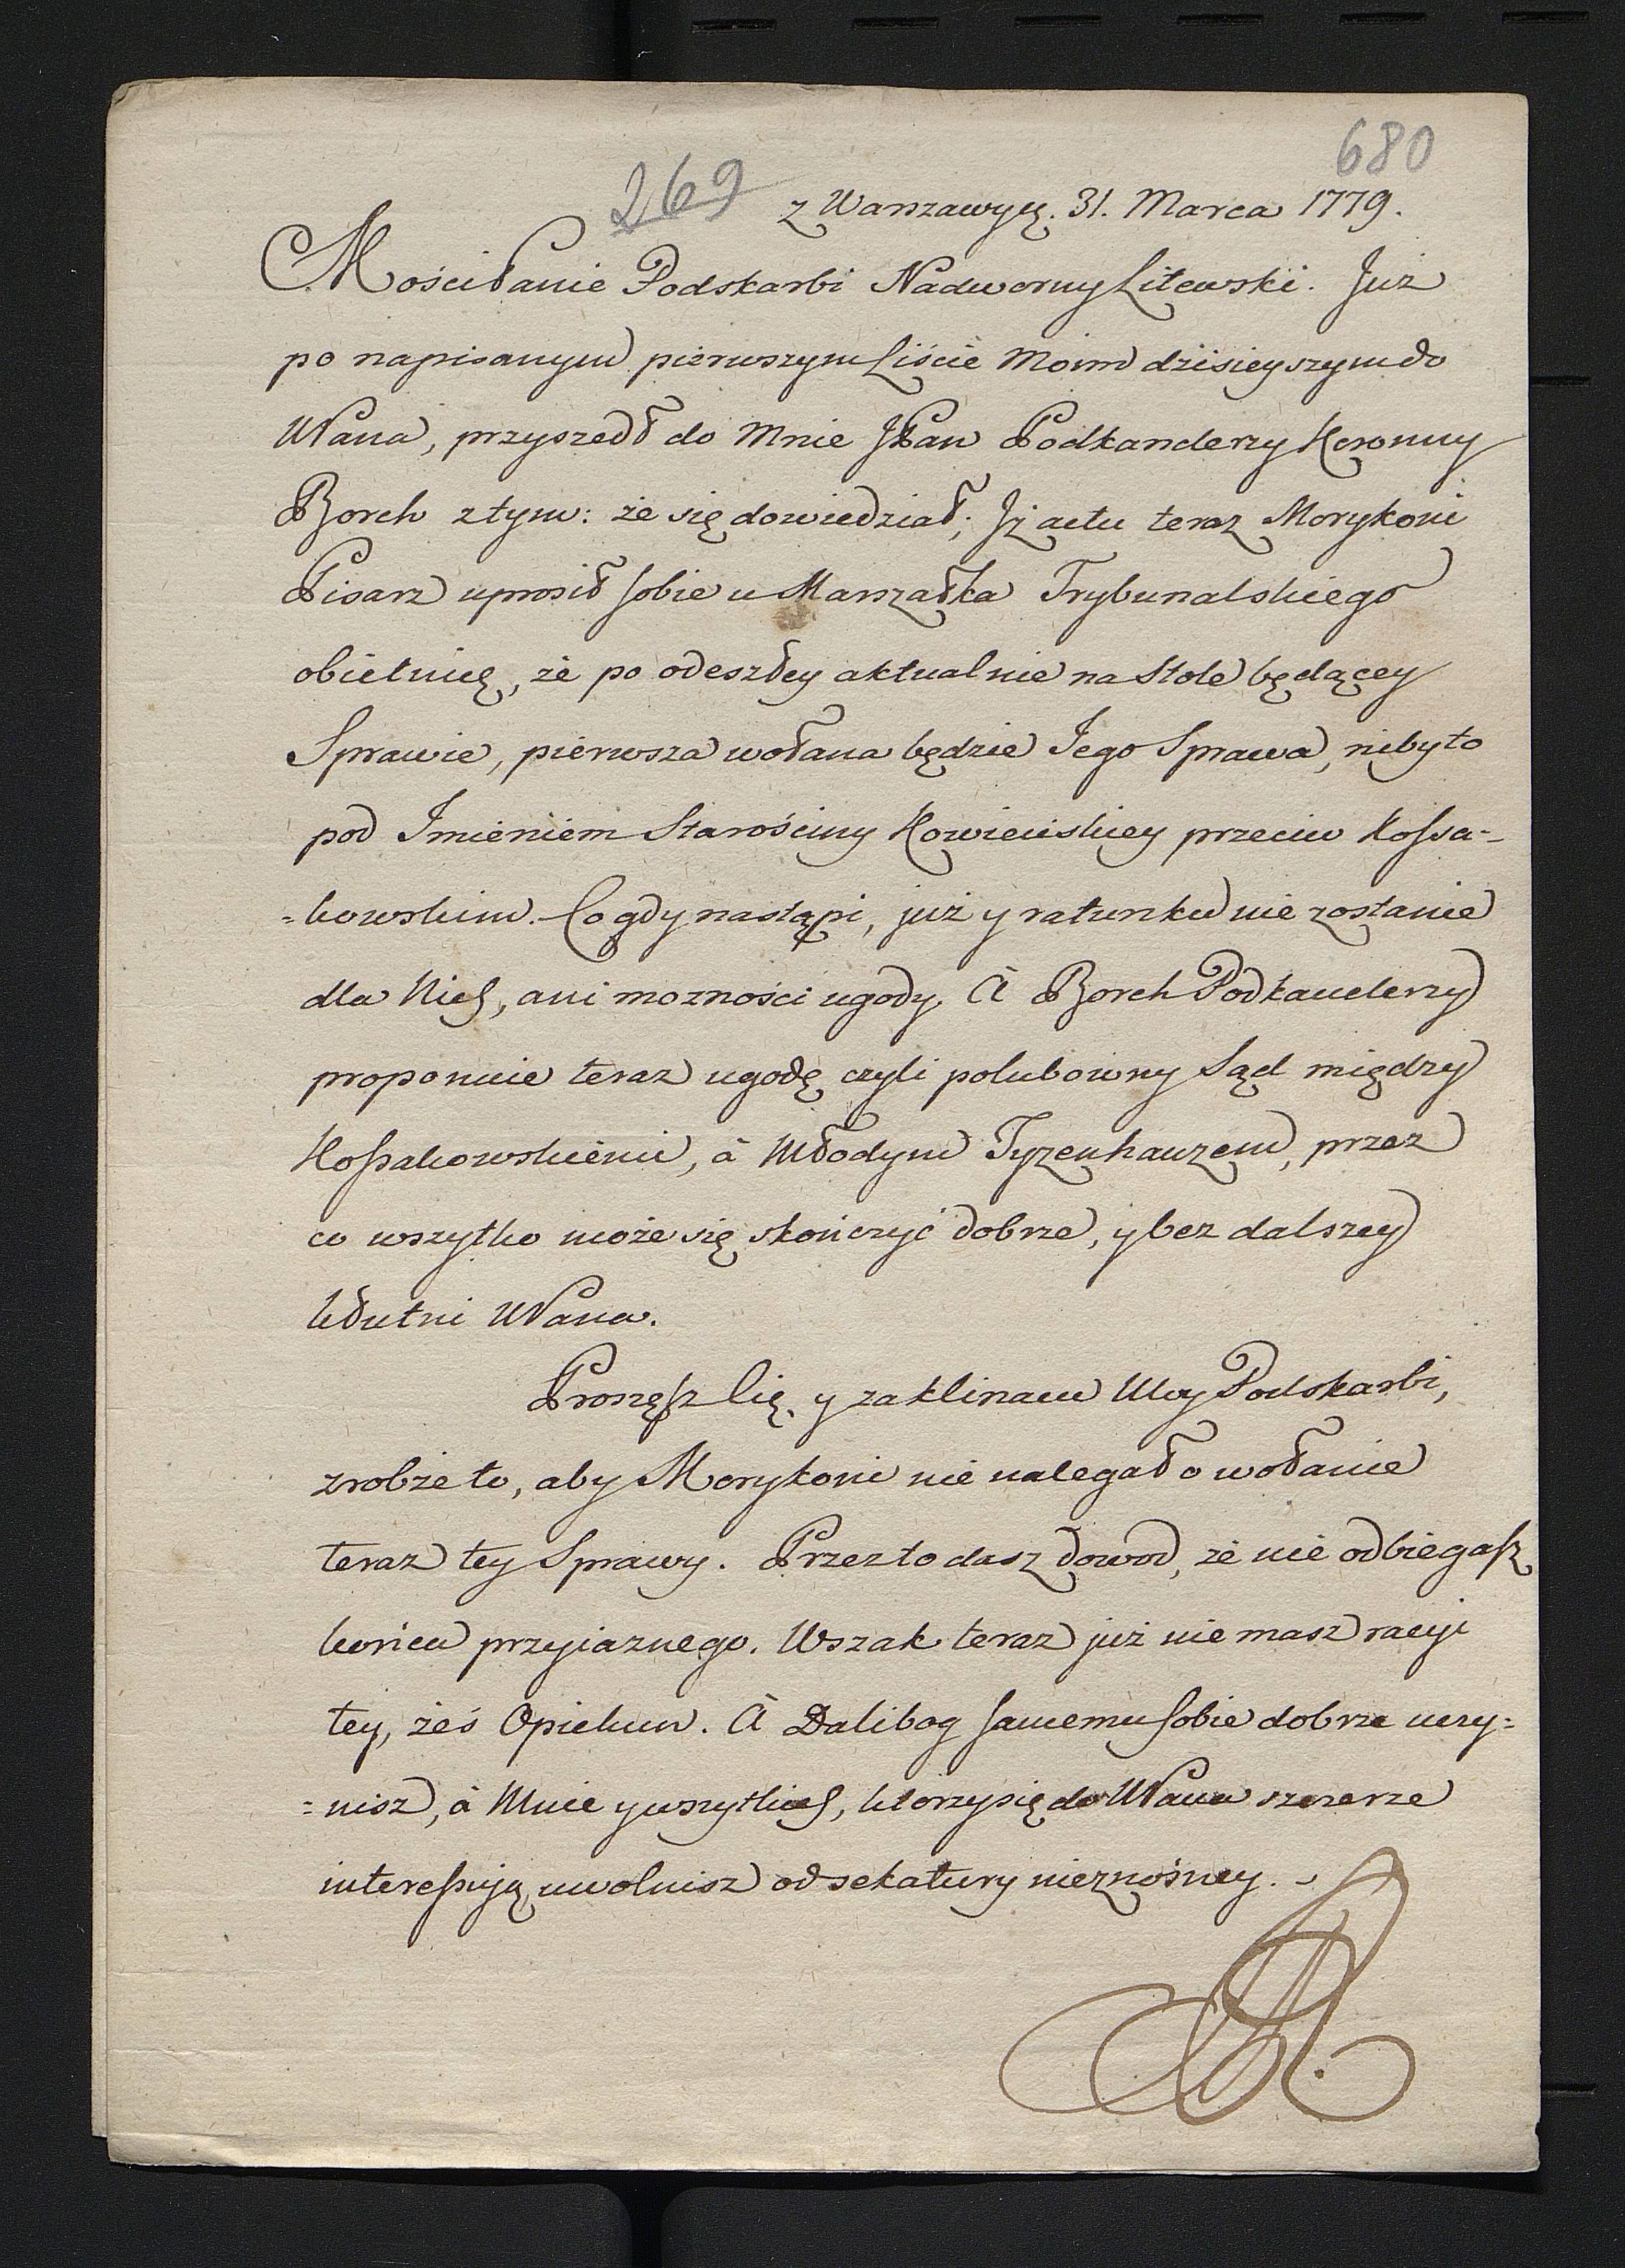 680
269
z Warszawy ę. 31. Marca 1779.
Mości Panie Podskarbi Nadworny Litewski. Już
po napisanym pierwszym Liście Moim dzisieyszym do
WPana, przyszedł do Mnie JPan Podkanclerzy Koronny
Borch z tym: że się dowiedział; Jż actu teraz Morykoni
Pisarz uprosił sobie u Marszałka Trybunalskiego
obietnicę, że po odeszłey aktualnie na Stole będącey
Sprawie, pierwsza wołana będzie Jego Sprawa, niby to
pod Jmieniem Starościny Kowieńskiey przeciw Kossa-
=kowskim. Co gdy nastąpi, już y ratunku nie zostanie
dla Nich, ani mozności ugody. À Borch Podkanclerzy
proponuie teraz ugodę czyli polubowny Sąd między
Kossakowskiemi, à Młodym Tyzenhauzem, przez
co wszytko może się skończyć dobrze, y bez dalszey
kłutni WPana.
Proszęsz Cię, y zaklinam Moy Podskarbi,
zrobże to, aby Morykoni nie nalegał o wołanie
teraz tey Sprawy. Przez to dasz dowod, że nie odbiegasz
końca przyiaznego. Wszak teraz już nie masz racyi
tey, żeś Opiekun. À Dalibog samemu sobie dobrze uczy=
=nisz, à Mnie y wszytkich, ktorzy się do WPana szczerze
interessują uwolnisz od sekatury nieznośney.